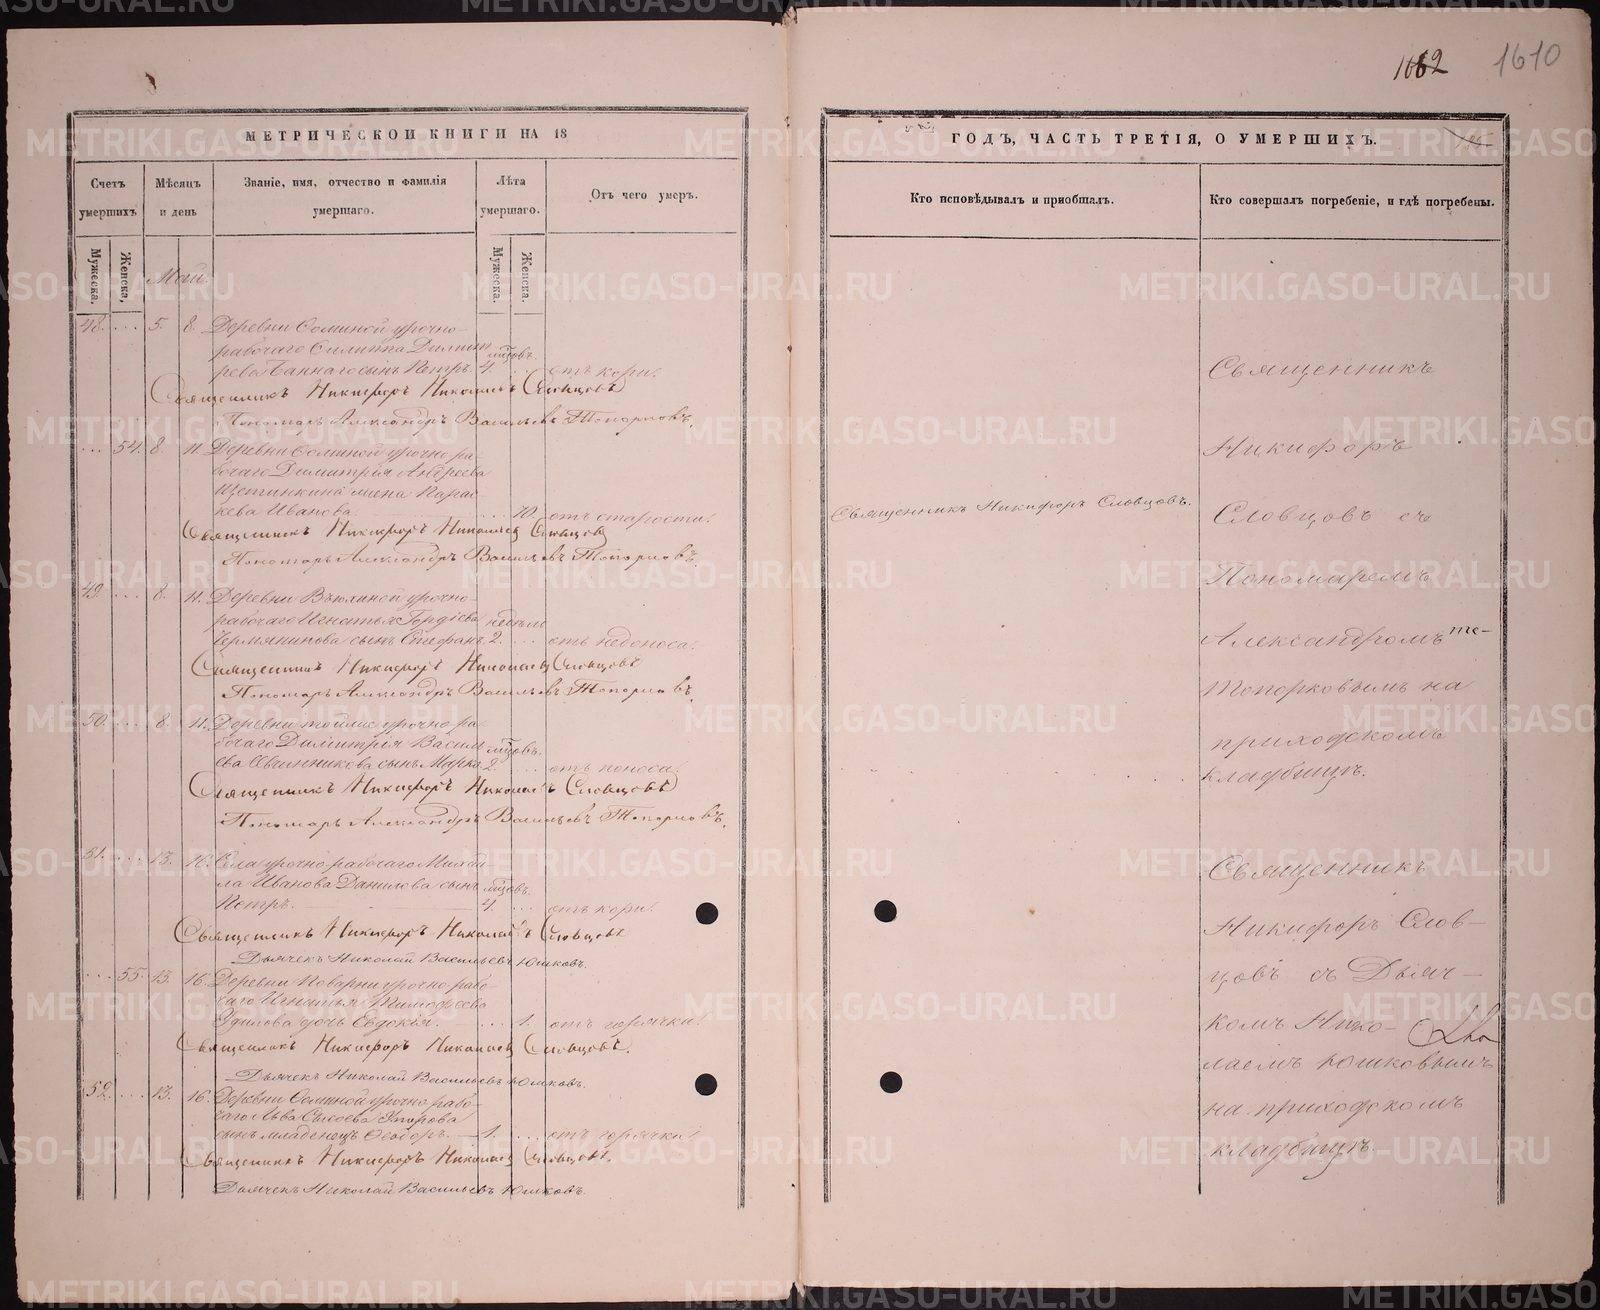 1662 1610
МЕТРИЧЕСКОЙ КНИГИ НА 18
Счетъ умершихъ
Мужеска.
Женска.
Мѣсяцъ и день
Званіе, имя, отчество и фамилія умершаго.
Лѣта умершаго.
Мужеска.
Женска.
Отъ чего умеръ.
Май.
48. ... 5. 8. Деревни Соминой урочно-
рабочаго Филиппа Димит мѣсяцовъ.
рева сынъ Петръ. 4. ... отъ кори.
Священникъ Никифоръ Николаевъ Словцовъ
Пономарь Александръ Васильевъ Топорковъ.
... 54. 8. 11. Деревни Соминой урочно-ра-
бочаго Димитрія Андреева
Щетинкина жена Парас
кева Иванова. 70. отъ старости.
Священникъ Никифоръ Николаевъ Словцовъ
Пономарь Александръ Васильевъ Топорковъ.
49. ... 8. 11. Деревни Вьюхиной урочно-
рабочаго Игнатья Гордѣева недѣли
сынъ Стефанъ 2. ... отъ недоноса.
Священникъ Никифоръ Николаевъ Словцовъ
Пономарь Александръ Васильевъ Топорковъ.
50. ... 8. 11. Деревни урочно-ра-
бочаго Димитрія Василь мѣсяцовъ.
ева Овчинникова сынъ Марка 2. ... отъ поноса.
Священникъ Никифоръ Николаевъ Словцовъ
Пономарь Александръ Васильевъ Топорковъ.
51. ... 13. 16. Села урочно-рабочаго Михай
ла Иванова Данилова сынъ мѣсяцовъ.
Петръ. 4. ... отъ кори.
Священникъ Никифоръ Николаевъ Словцовъ
Дьячекъ Николай Васильевъ Юшковъ.
... 55. 13. 16. Деревни Поварни урочно-рабо-
чаго Игнатья Тимофѣева
дочь Евдокія. ... 1. отъ горячки.
Священникъ Никифоръ Николаевъ Словцовъ.
Дьячекъ Николай Васильевъ Юшковъ.
52. ... 13. 16. Деревни Соминой урочно-рабо-
чаго Льва Сысоева
сынъ младенецъ Ѳеодоръ. 1. ... отъ горячки.
Священникъ Никифоръ Николаевъ Словцовъ.
Дьячекъ Николай Васильевъ Юшковъ.
ГОДЪ, ЧАСТЬ ТРЕТІЯ, О УМЕРШИХЪ.
Кто исповѣдывалъ и пріобщалъ.
Кто совершалъ погребеніе, и гдѣ погребены.
Священникъ Никифоръ Словцовъ.
Священникъ
Никифоръ
Словцовъ съ
Пономаремъ
Александромъ
Топорковымъ на
приходскомъ
кладбищѣ.
Священникъ
Никифоръ Слов-
цовъ съ Дьяч-
комъ Нико-
лаемъ Юшковымъ
на приходскомъ
кладбищѣ.
METRIKI.GASO-URAL.RU